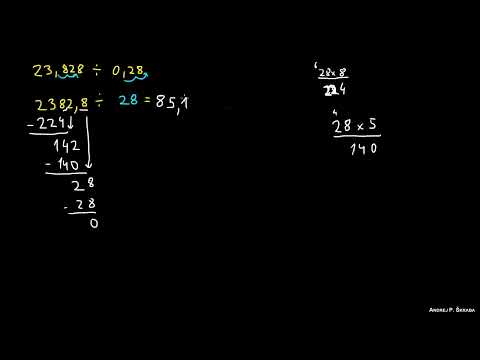 23,828 ÷ 0,28
2382,8 ÷ 28 = 85,1
-224
142
-140
28
-28
0
6
28×8
224
4
28×5
140
ANDREJ P. ŠKRABA